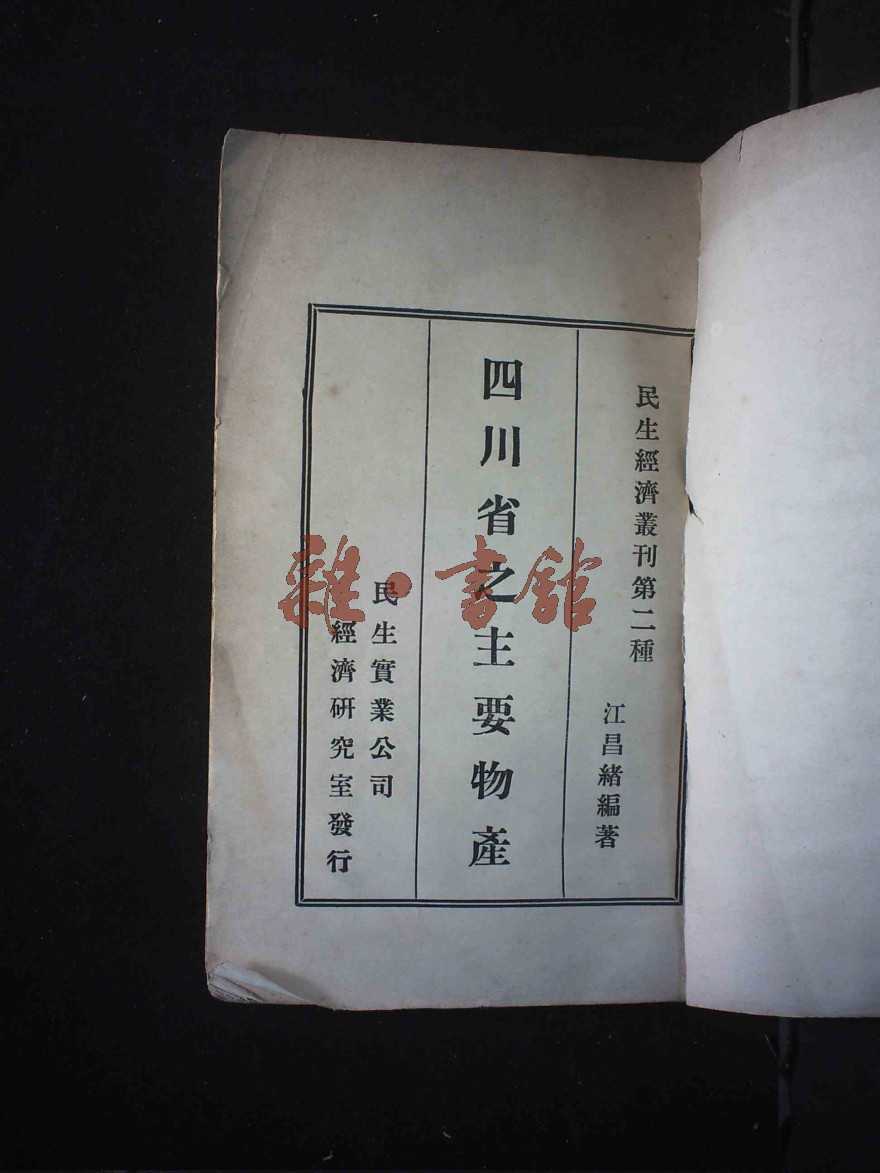 民生經濟叢刊第二種
江昌緒編著
四川省之主要物產
民生實業公司
經濟研究室發行
雜·書館